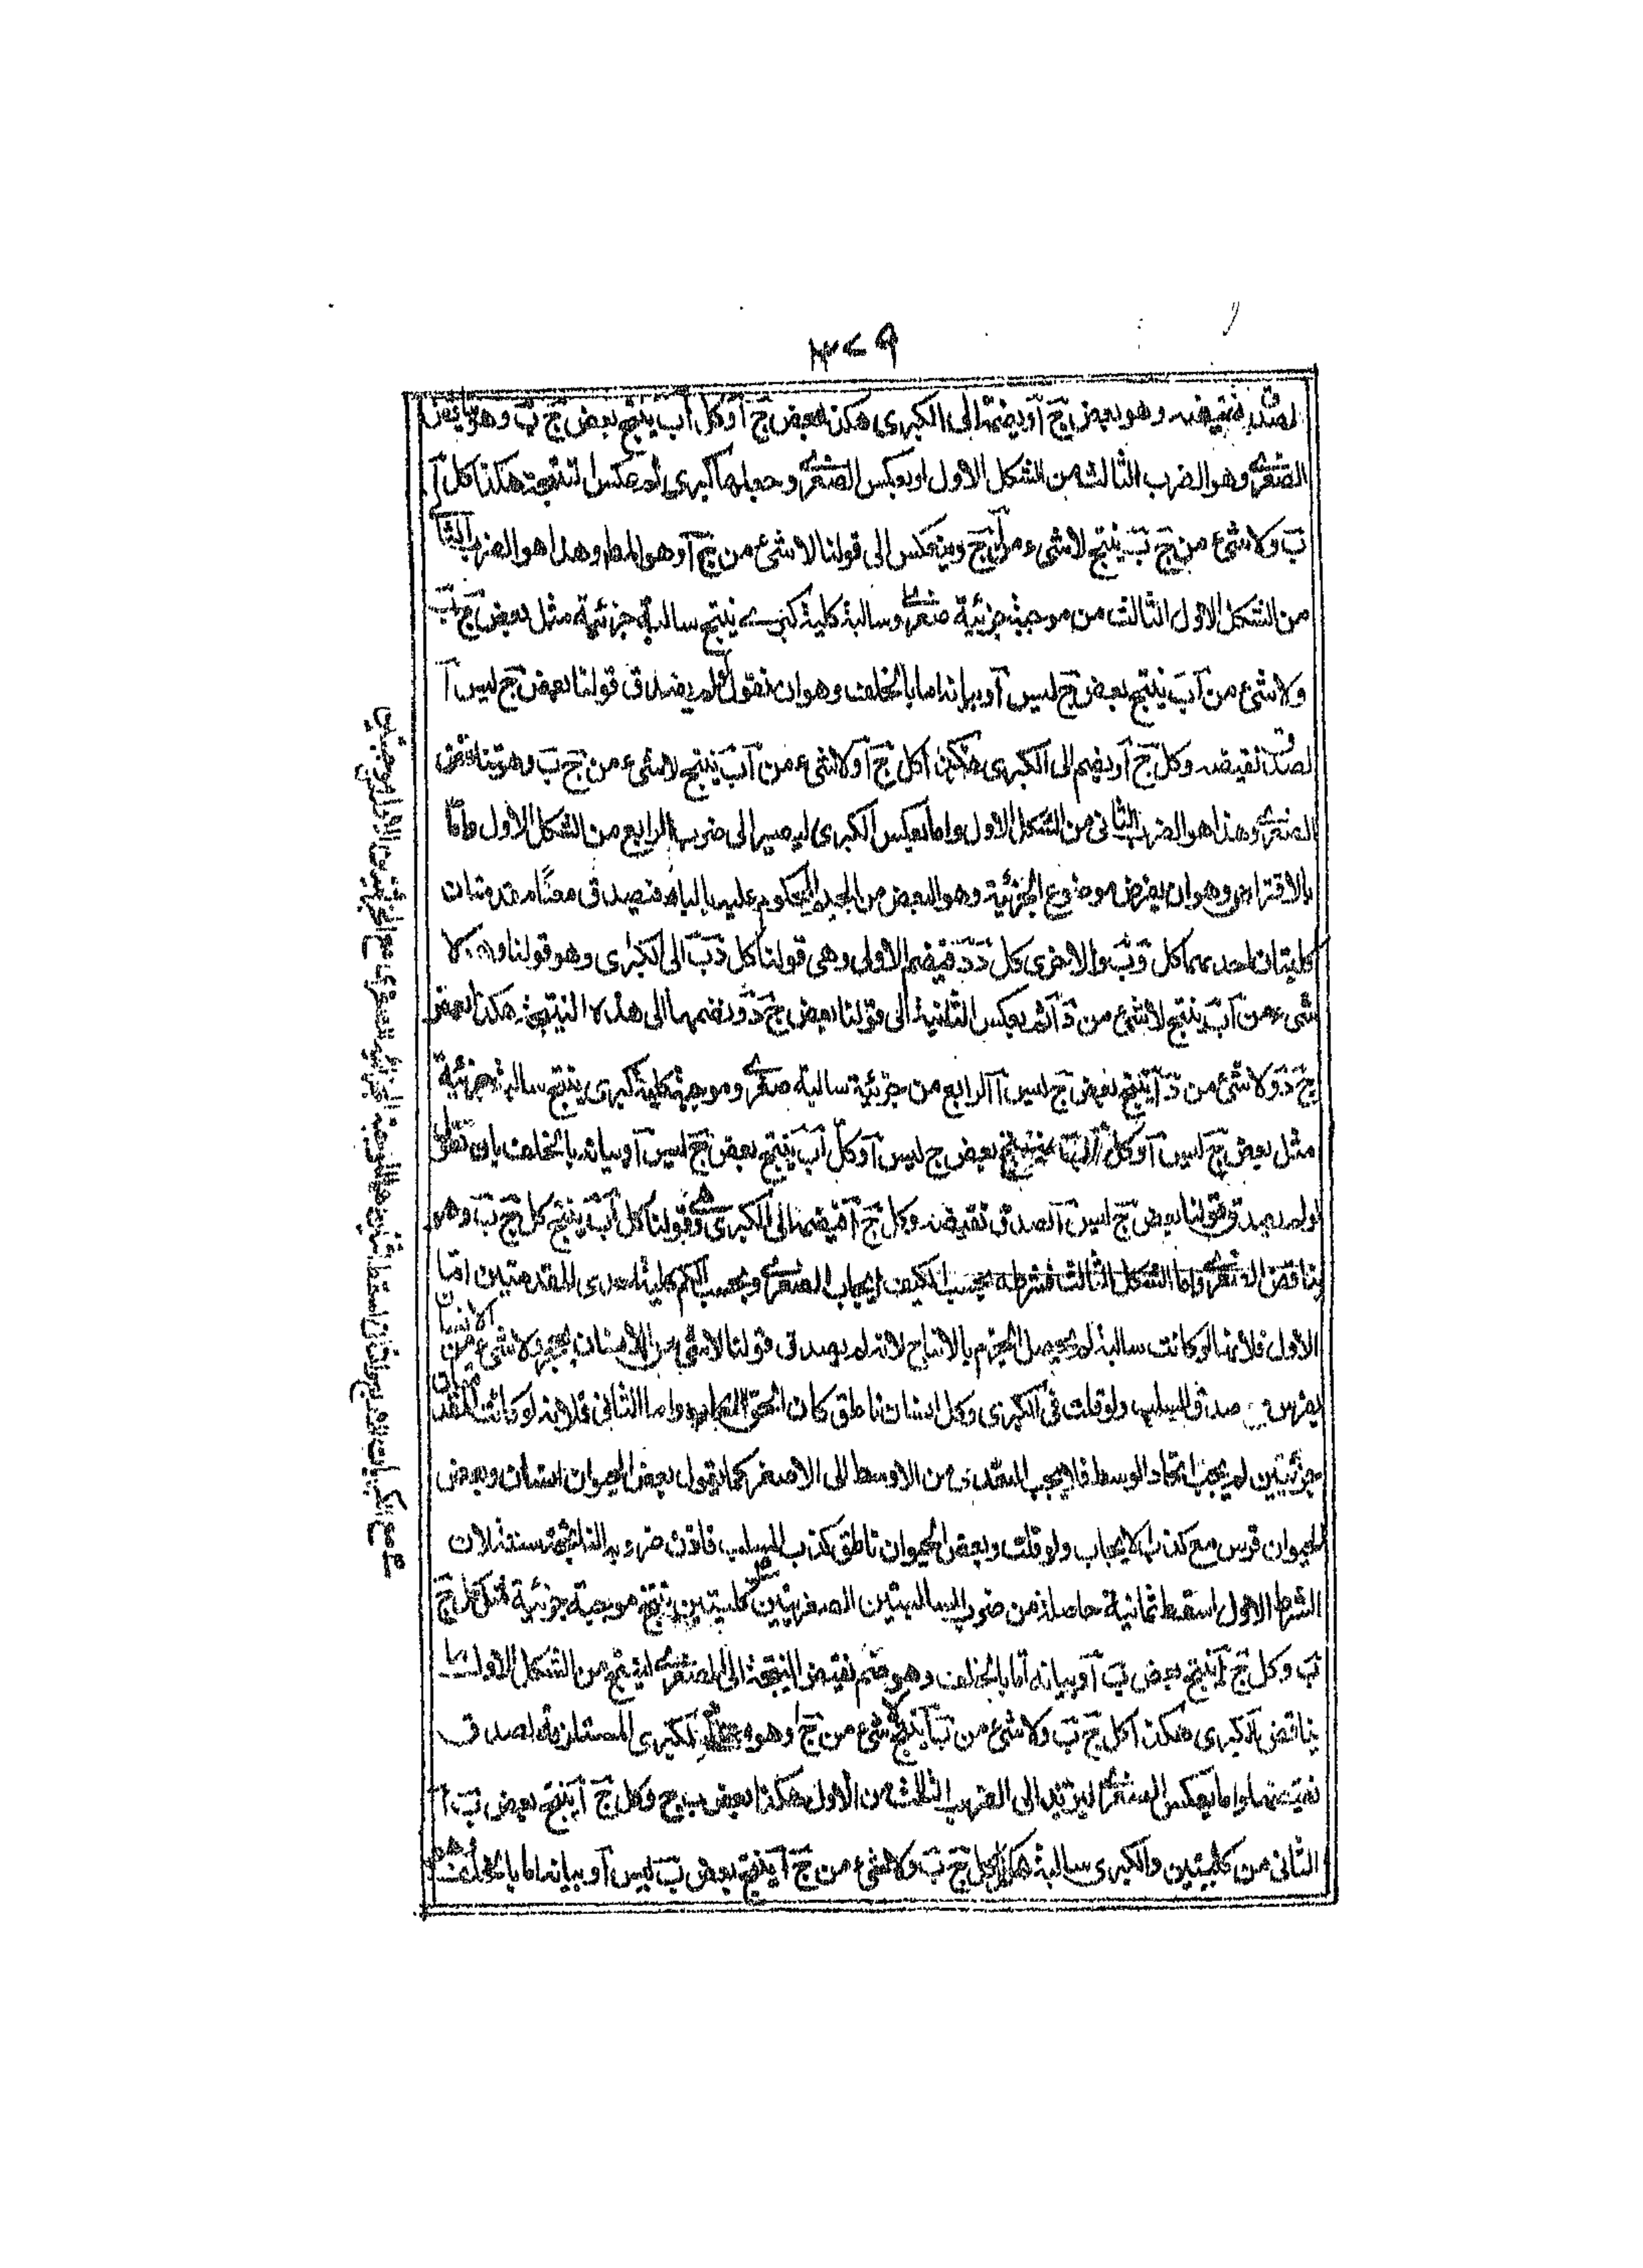 ٣٧٩
لصدق نقيضه وهو بعض ج آ ويضم الى الكبرى هكذا بعض ج آ وكل آ ب ينتج بعض ج ب وهو يناقض
الصغرى وهو الضرب الثالث من الشكل الاول او بعكس الصغرى وجعلها كبرى ثم عكس النتيجة هكذا كل آ
ب ولا شئ من ج ب ينتج لا شئ من آ ج وينعكس الى قولنا لا شئ من ج آ وهو المط وهذا هو الضرب الثانى
من الشكل الاول الثالث من موجبة جزئية صغرى وسالبة كلية كبرى ينتج سالبة جزئية مثل بعض ج ب
ولا شئ من آ ب ينتج بعض ج ليس آ وبيانه اما بالخلف وهو ان نقول لو لم يصدق قولنا بعض ج ليس آ
لصدق نقيضه وكل ج آ ويضم الى الكبرى هكذا كل ج آ ولا شئ من آ ب ينتج لا شئ من ج ب وهو يناقض
الصغرى وهذا هو الضرب الثانى من الشكل الاول واما بعكس الكبرى ليصير الى ضرب الرابع من الشكل الاول واما
بالافتراض وهو ان يفرض موضوع الجزئية وهو البعض من الجيم المحكوم عليه بالباء فيصدق معنا مقدمتان
كليتان احدىهما كل د ب والاخرى كل د ج فيضم الاولى وهى قولنا كل د ب الى الكبرى وهو قولنا ولا
شئ من آ ب ينتج لا شئ من د آ ثم بعكس الثانية الى قولنا بعض ج د ونضمها الى هذه النتيجة هكذا بعض
ج د ولا شئ من د آ ينتج بعض ج ليس آ الرابع من جزئية سالبة صغرى وموجبة كلية كبرى ينتج سالبة جزئية
مثل بعض ج ليس آ وكل ينتج بعض ج ليس آ وكل آ ب ينتج بعض ج ليس آ وبيانه بالخلف بان نقول
لو لم يصدق قولنا بعض ج ليس آ لصدق نقيضه وكل ج آ فيضمها الى الكبرى وهى قولنا كل آ ب ينتج كل ج ب وهو
يناقض الصغرى واما الشكل الثالث فشرطه بحسب الكيف ايجاب الصغرى وبحسب الكم كلية احدى المقدمتين اما
الاول فلانها لو كانت سالبة لم يحصل الجزم بالانتاج لانه لم يصدق قولنا لا شئ من الانسان بحجر ولا شئ من الانسان
بفرس صدق السلب ولو قلت فى الكبرى وكل انسان ناطق كان الحق واما الثانى فلانه لو كانت المقدمتان
جزئيتين لم يجب اتحاد الوسط فلا يجب التعدى من الاوسط الى الاصغر كما يقول بعض الحيوان انسان وبعض
الحيوان فرس مع كذب الايجاب ولو قلت وبعض الحيوان ناطق كذب السلب فاذن ضروبه الناتجة ستة لان
الشرط الاول اسقط ثمانية حاصلة من ضرب السالبتين الصغريتين كليتين ينتج موجبة جزئية مثل كل ج
ب وكل ج آ ينتج بعض ب آ وبيانه اما بالخلف وهو ضم نقيض النتيجة الى الصغرى لينتج من الشكل الاول ما
يناقض الكبرى هكذا كل ج ب ولا شئ من ب آ ينتج لا شئ من ج آ وهو الكبرى المستلزمة لصدق
نقيضها واما بعكس الصغرى ليرتد الى الضرب الثالث من الاول هكذا بعض ب ج وكل ج آ ينتج بعض ب آ
الثانى من كليتين والكبرى سالبة هكذا كل ج ب ولا شئ من ج آ ينتج بعض ب ليس آ وبيانه اما بالخلف